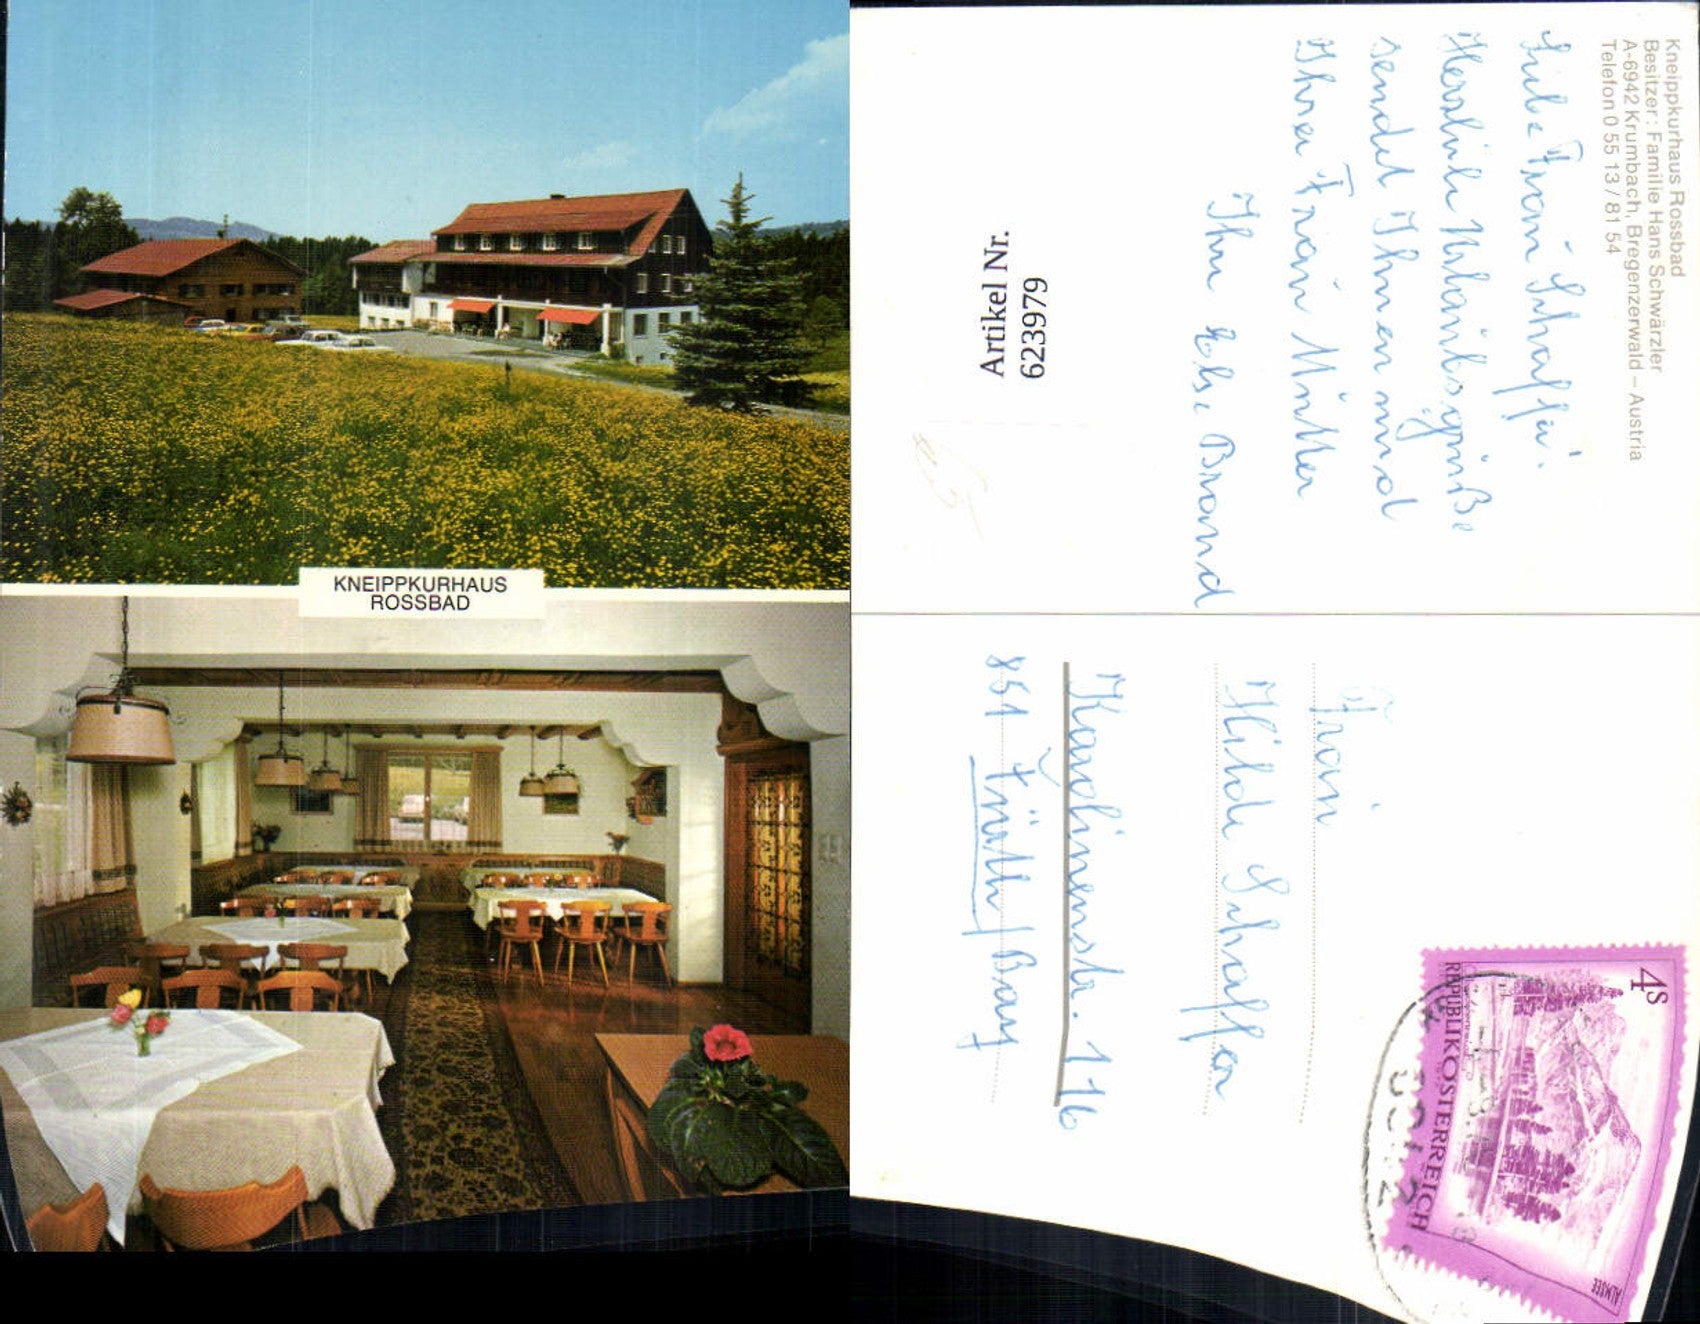 KNEIPPKURHAUS
ROSSBAD
Kneippkurhaus Rossbad
Besitzer: Familie Hans Schwärzler
A-6942 Krumbach, Bregenzerwald – Austria
Telefon 0 55 13 / 81 54
Liebe Frau Schaffer.
Herzliche Urlaubsgrüße
sendet Ihnen und
Ihrer Frau Mutter
Ihre Else Brand
Artikel Nr.
6239979
Frau
Hilde Schaffer
Karolinenstr. 116
851 Fürth / Bay
4S
REPUBLIK ÖSTERREICH
ALMSEE